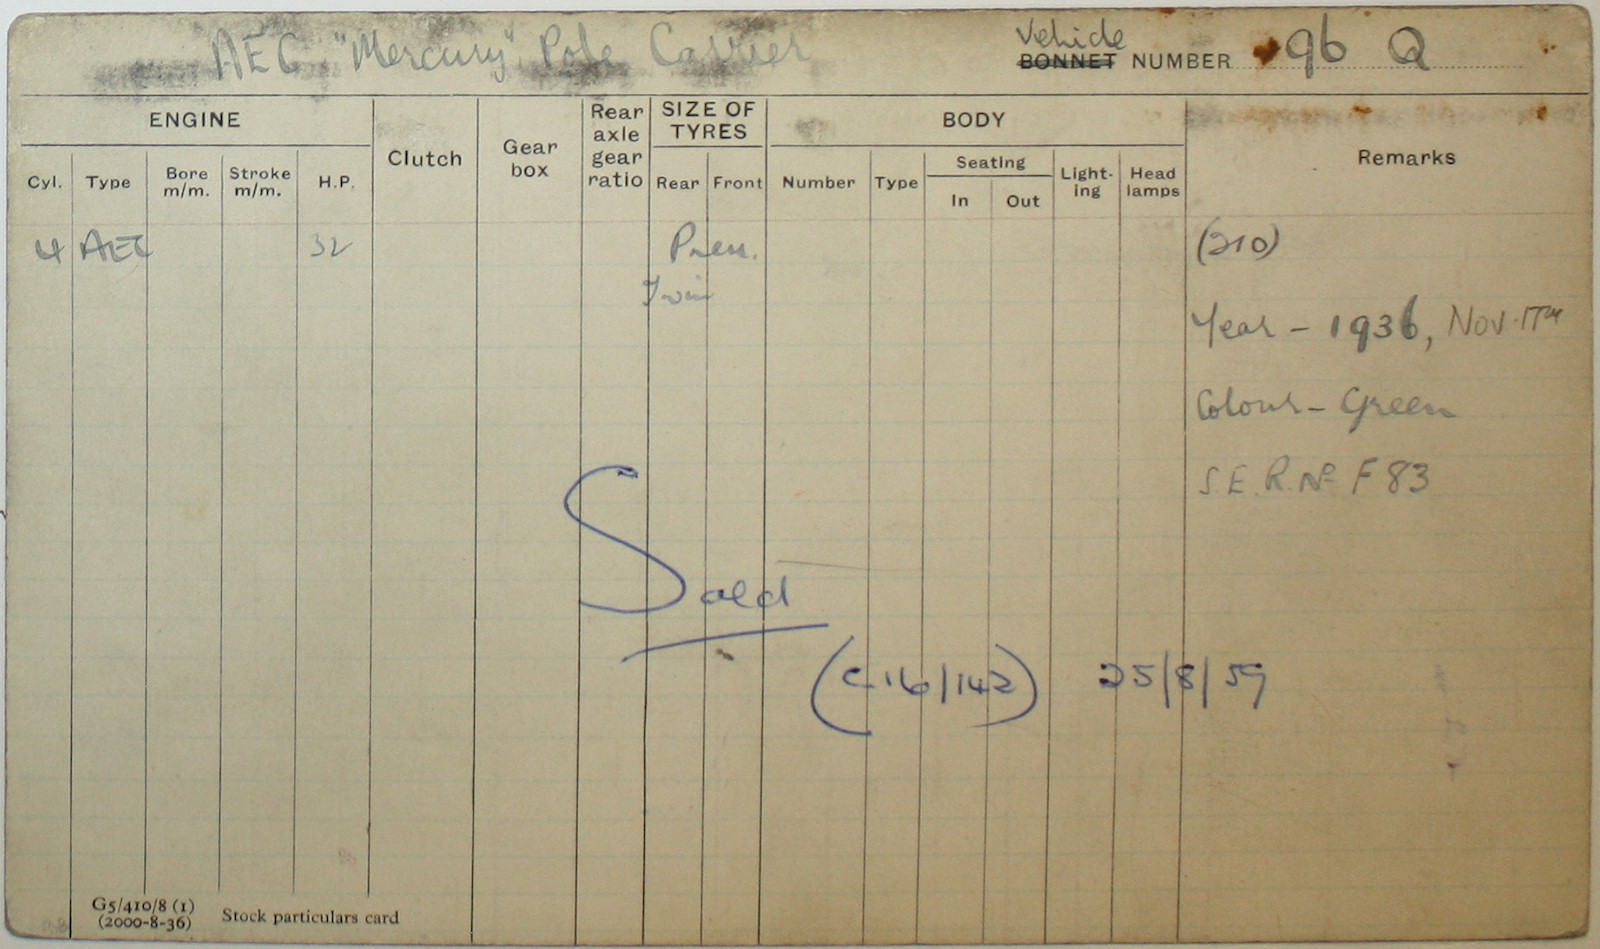 AEC "Mercury" Pole Carrier
Vehicle
BONNET NUMBER 96 Q
ENGINE
Clutch
Gear box
Rear axle gear ratio
SIZE OF TYRES
BODY
Remarks
Cyl. Type Bore m/m. Stroke m/m. H.P.
Rear Front
Number Type Seating In Out Light-ing Head lamps
4 AEC 32 Pneu. (210)
Twin
Year - 1936, Nov. 17TH
Colour - Green
S.E.R. No F 83
Sold
(C.16/142) 25/8/59
G5/410/8 (1)
(2000-8-36)
Stock particulars card